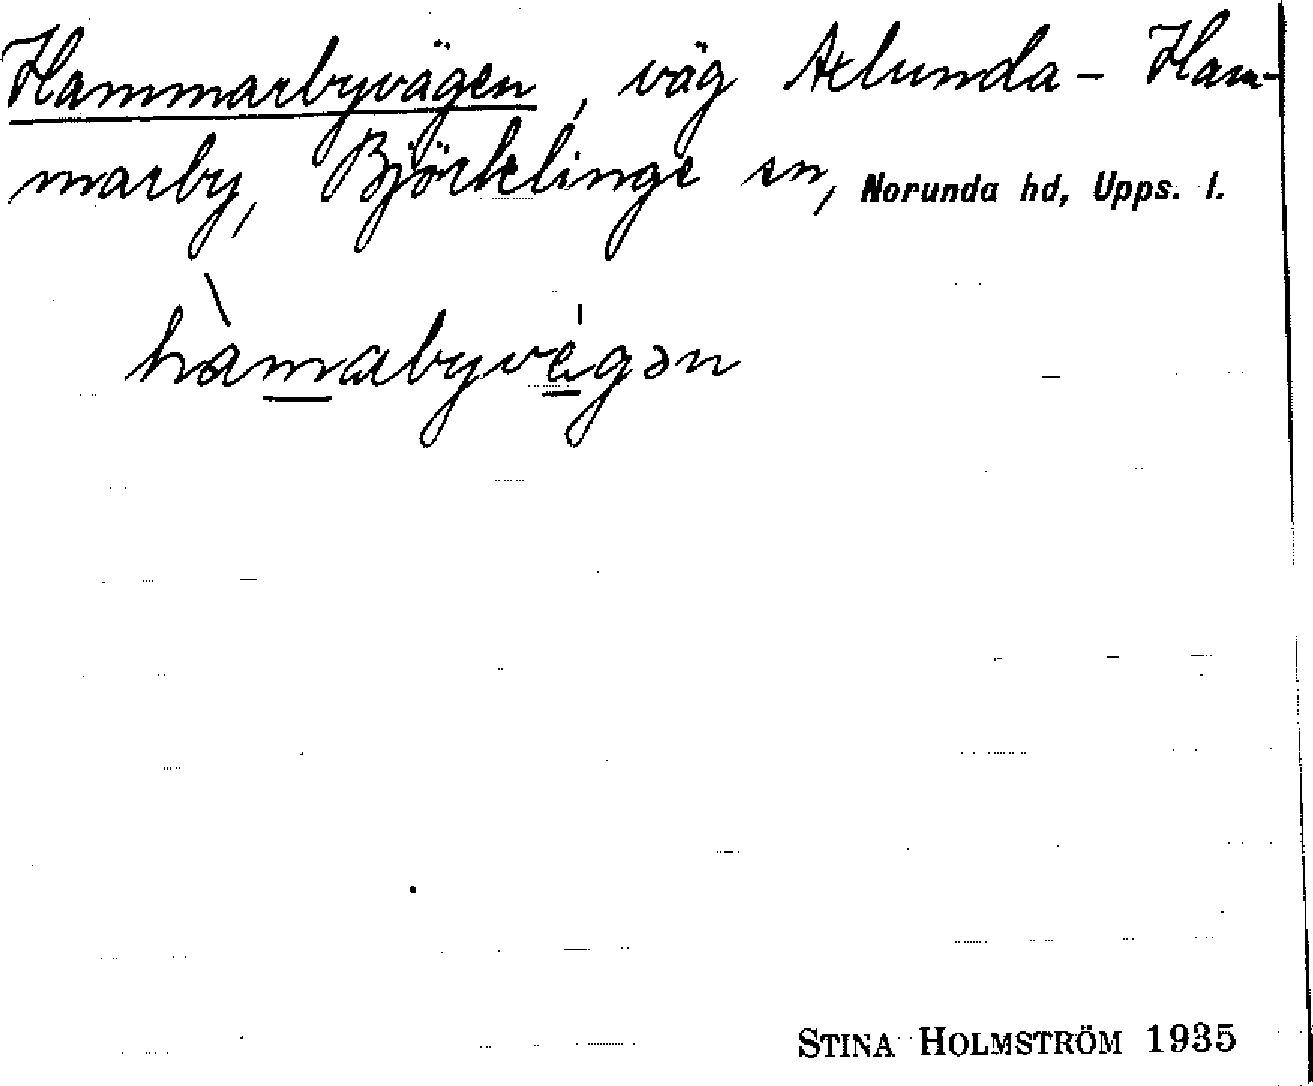 Hammarbyvägen, väg Axlunda - Ham-
marby, Björklinge sn, Norunda hd, Upps. l.
hàmabyvégən
STINA HOLMSTRÖM 1935